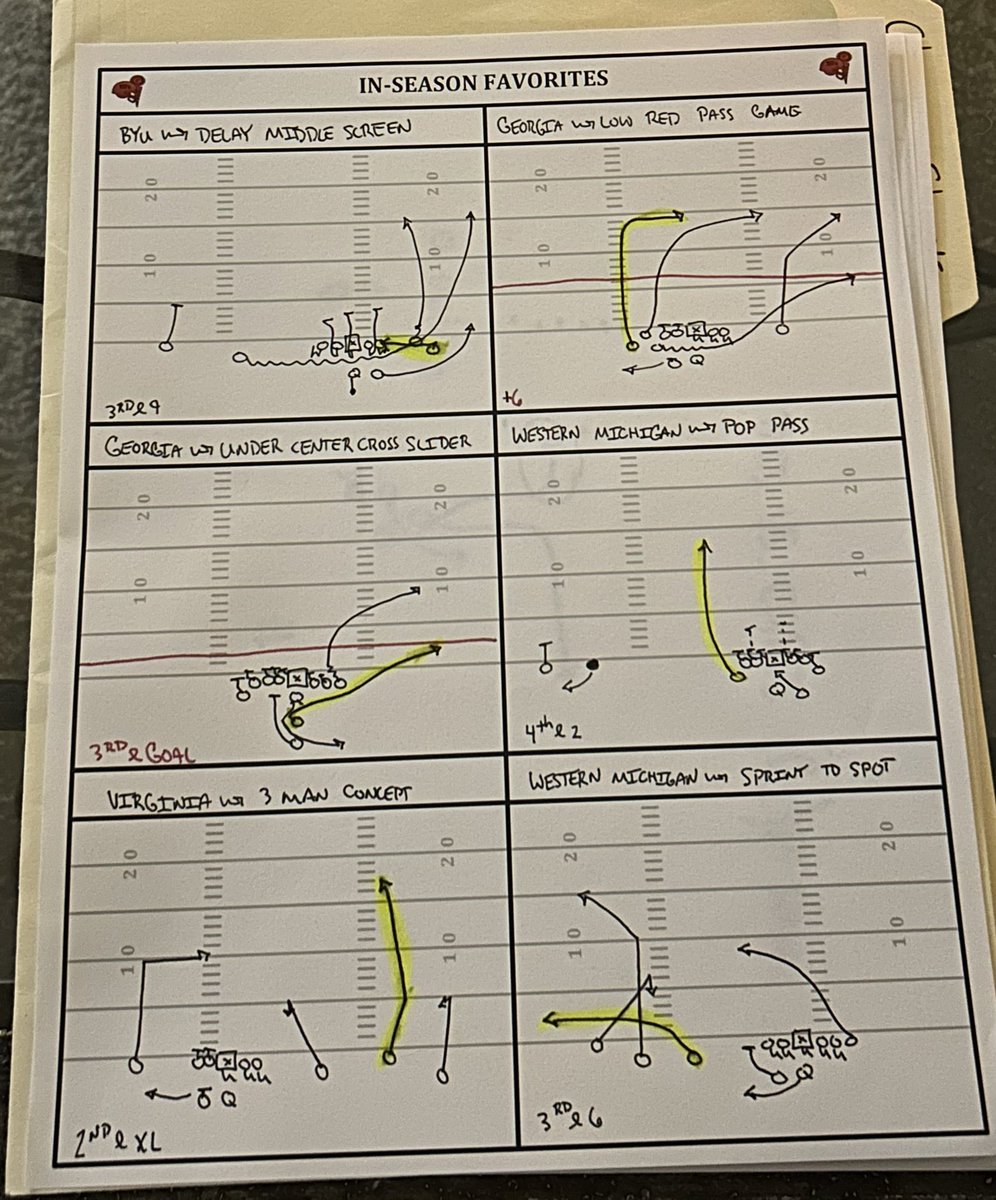 IN-SEASON FAVORITES
BYU w/ DELAY MIDDLE SCREEN
20 20
10 10
Q
3RD & 9
GEORGIA w/ LOW RED PASS GAME
20 20
10 10
Q
+6
GEORGIA w/ UNDER CENTER CROSS SLIDER
20 20
10 10
Q
3RD & GOAL
WESTERN MICHIGAN w/ POP PASS
20 20
10 10
Q
4th & 2
VIRGINIA w/ 3 MAN CONCEPT
20 20
10 10
Q
2ND & XL
WESTERN MICHIGAN w/ SPRINT TO SPOT
20 20
10 10
Q
3RD & 6